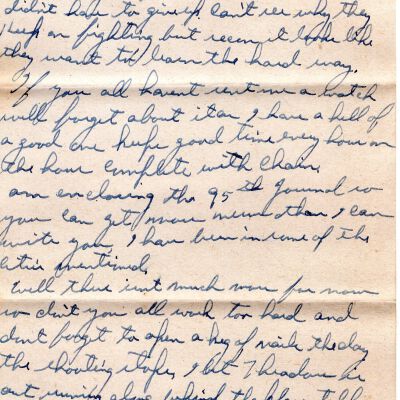 didn't have to give up. can't see why they
keep on fighting but recon it looks like
they want to learn the hard way.
If you all havent sent me a watch
well forget about it as I have a hell of
a good one keeps good time every hour on
the hour complete with chain.
am enclosing the 95th journal so
you can get more news than I can
write you, I have been in some of the
cities mentioned.
Well there isn't much more for now
so don't you all work too hard and
don't forget to open a keg of nails the day
the shooting stops, I bet Theadore is
out running along behind the plow